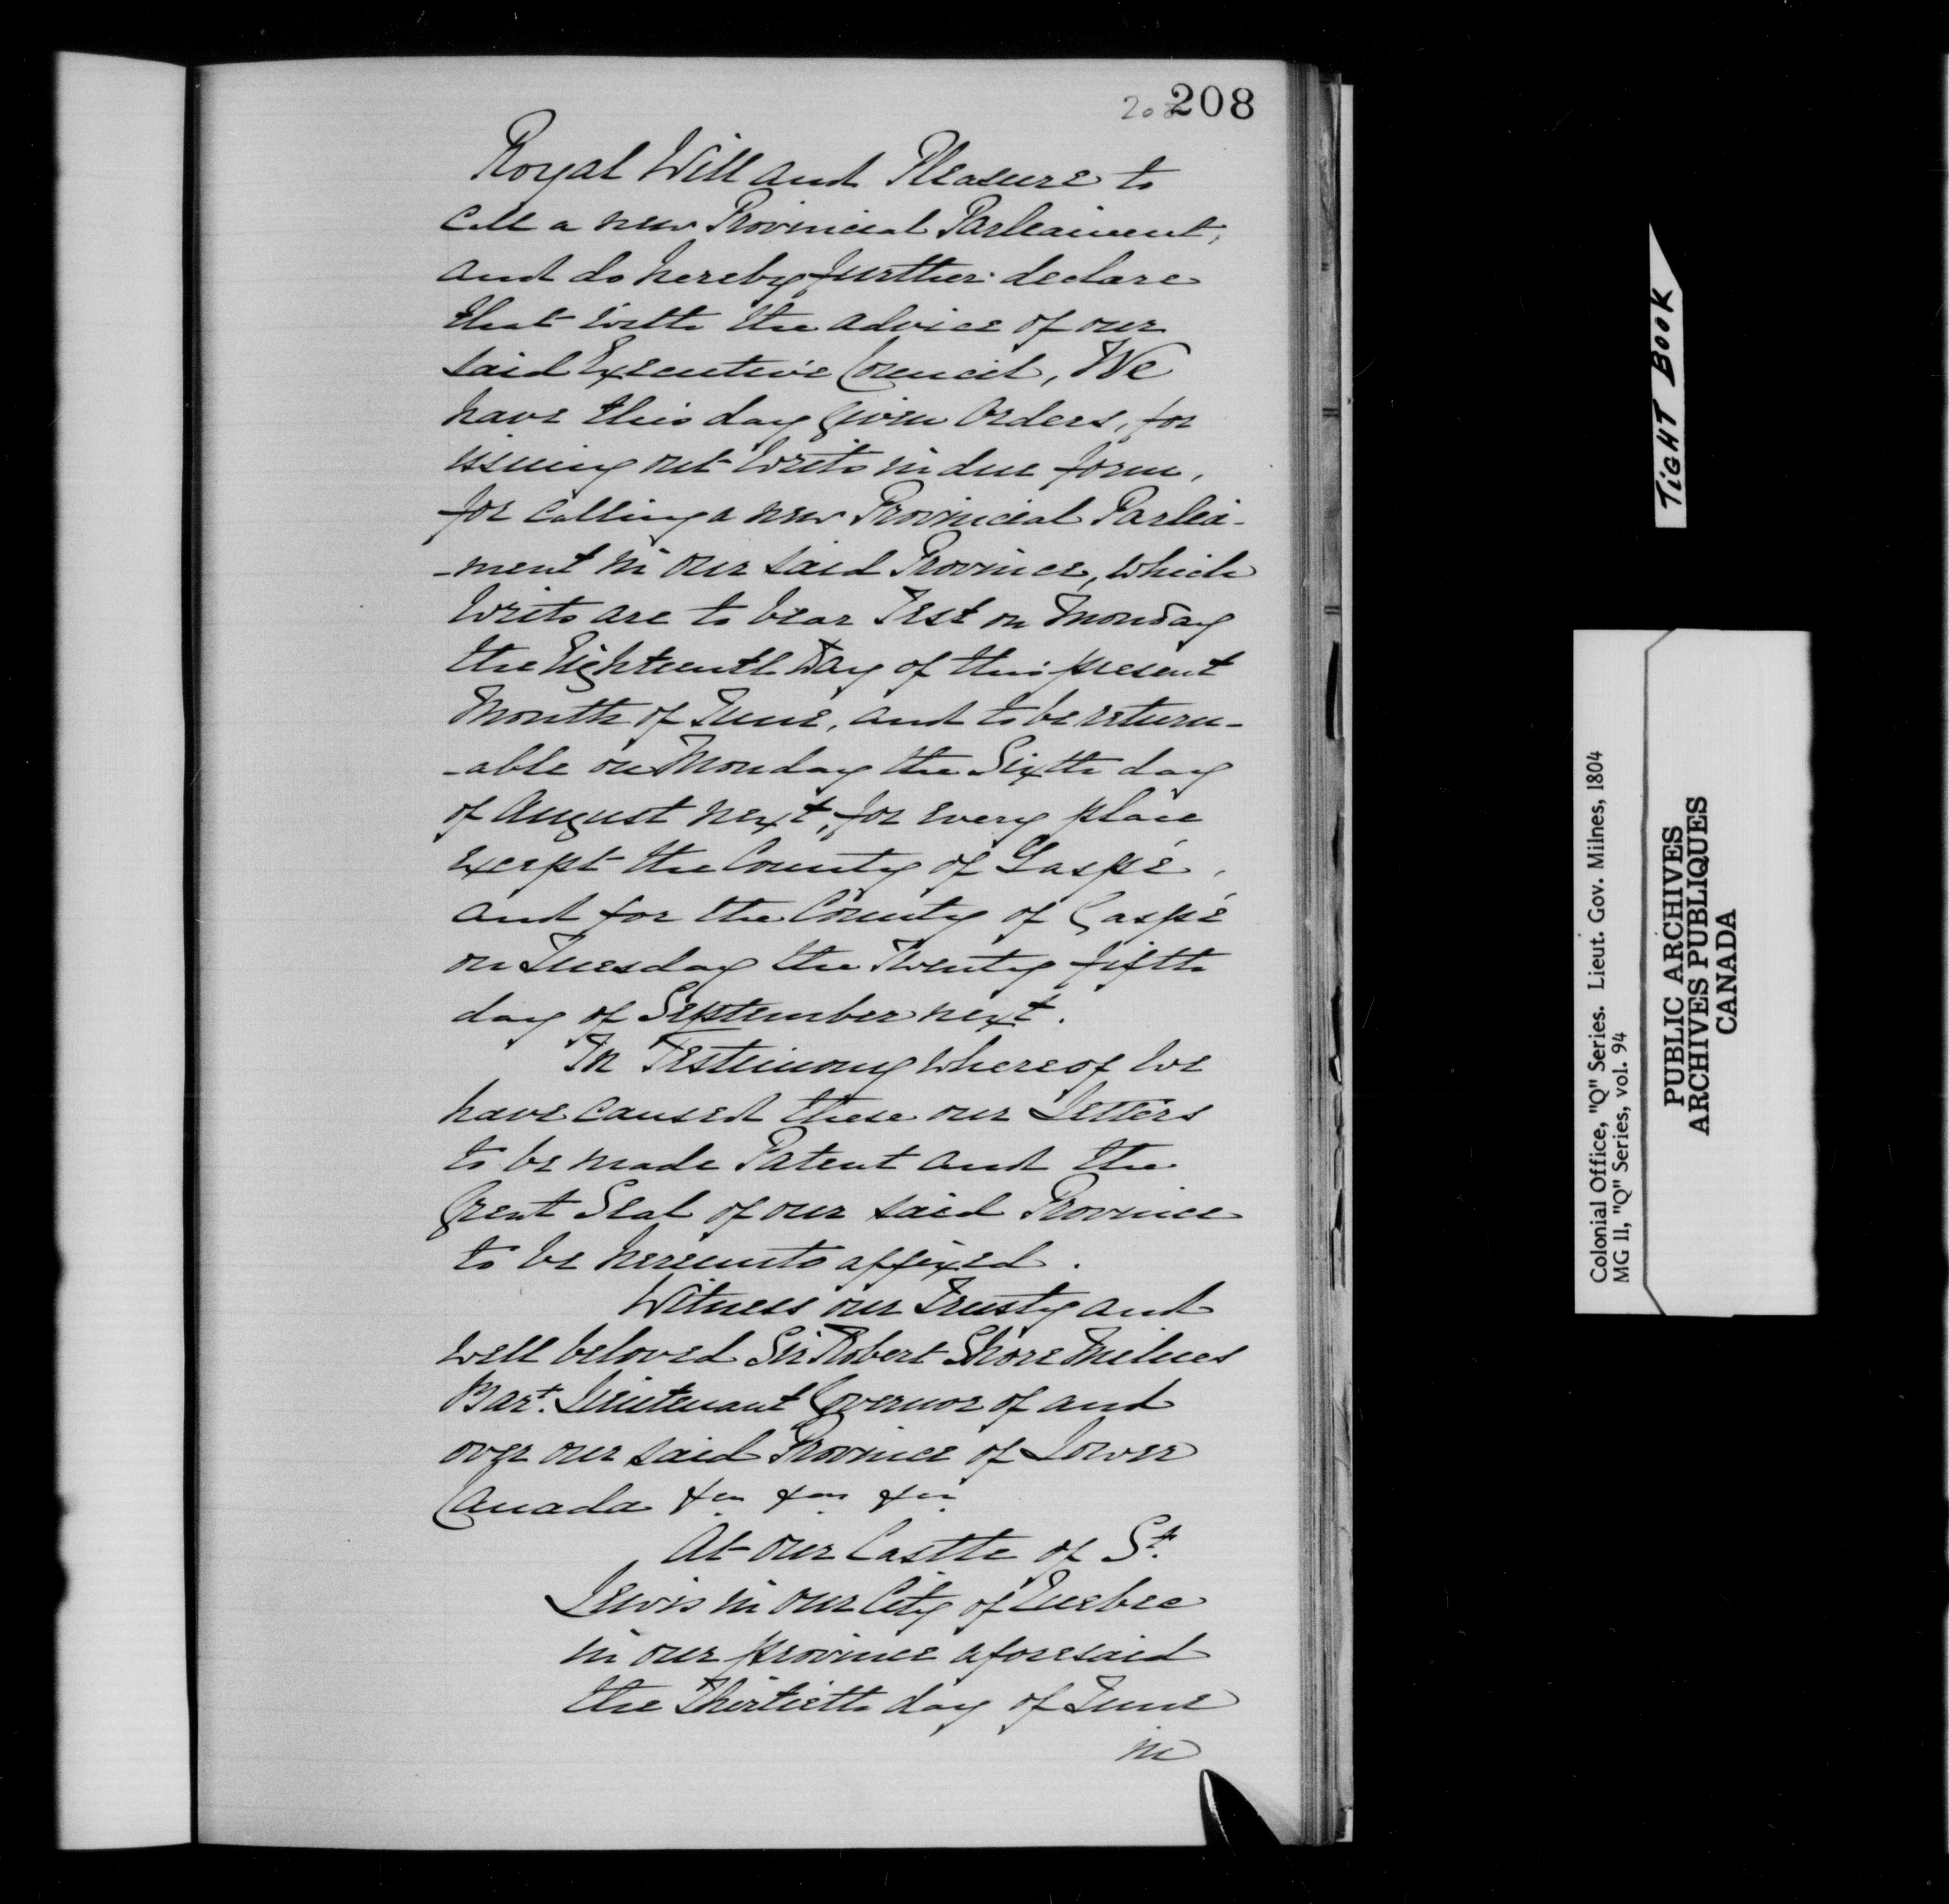 208
208
Royal Will and Pleasure to
Call a new Provincial Parliament,
and do hereby further declare
that with the advice of our
said Executive Council, We
have this day Given Orders, for
issuing out Writs in due form,
for calling a new Provincial Parlia-
-ment in our said Province, which
Writs are to bear Test on Monday
the Eighteenth Day of this present
Month of June, and to be return-
-able on Monday the Sixth day
of August next, for every place
except the County of Gaspé,
and for the County of Gaspé
on Tuesday the Twenty fifth
day of September next.
In Testimony Whereof We
have caused these our Letters
to be made Patent and the
Great Seal of our said Province
to be hereunto affixed.
Witness our Trusty and
well beloved Sir Robert Shore Milnes
Bart. Lieutenant Governor of and
over our said Province of Lower
Canada &ca &ca &ca
At our Castle of St.
Lewis in our City of Quebec
in our province aforesaid
the Thirtieth day of June
in
TIGHT BOOK
Colonial Office, "Q" Series. Lieut. Gov. Milnes, 1804
MG 11, "Q" Series, vol. 94
PUBLIC ARCHIVES
ARCHIVES PUBLIQUES
CANADA